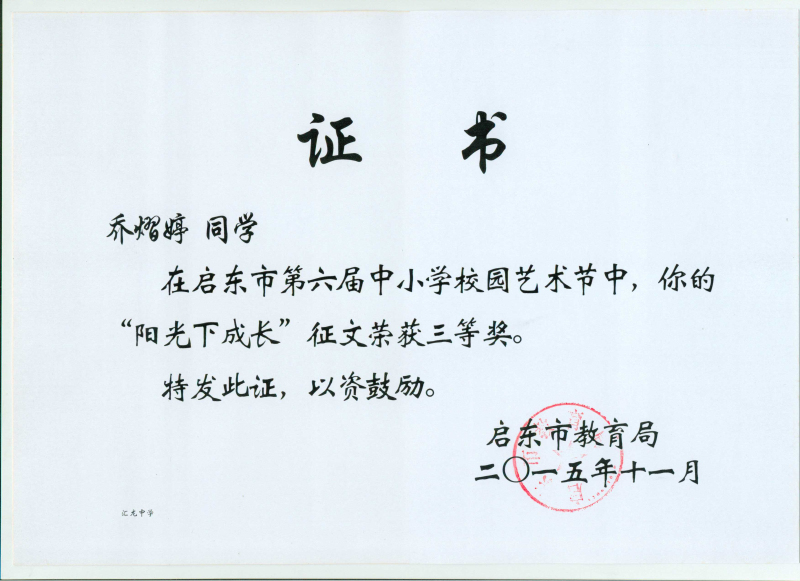 证 书
乔熠婷 同学
在启东市第六届中小学校园艺术节中，你的
“阳光下成长”征文荣获三等奖。
特发此证，以资鼓励。
启东市教育局
二〇一五年十一月
汇龙中学